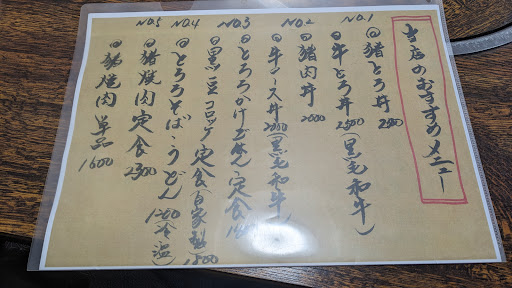 当店のおすすめメニュー
NO.1
◎猪とろ丼
◎牛とろ丼 2500(黒毛和牛)
NO.2
◎猪肉丼 2000
◎牛ロース丼 2000(黒毛和牛)
NO.3
◎とろろかけごはん定食
◎黒豆コロッケ定食(自家製)
NO.4
◎とろろそば・うどん 1200(冷温)
NO.5
◎猪焼肉定食 2300
◎猪焼肉単品 1600